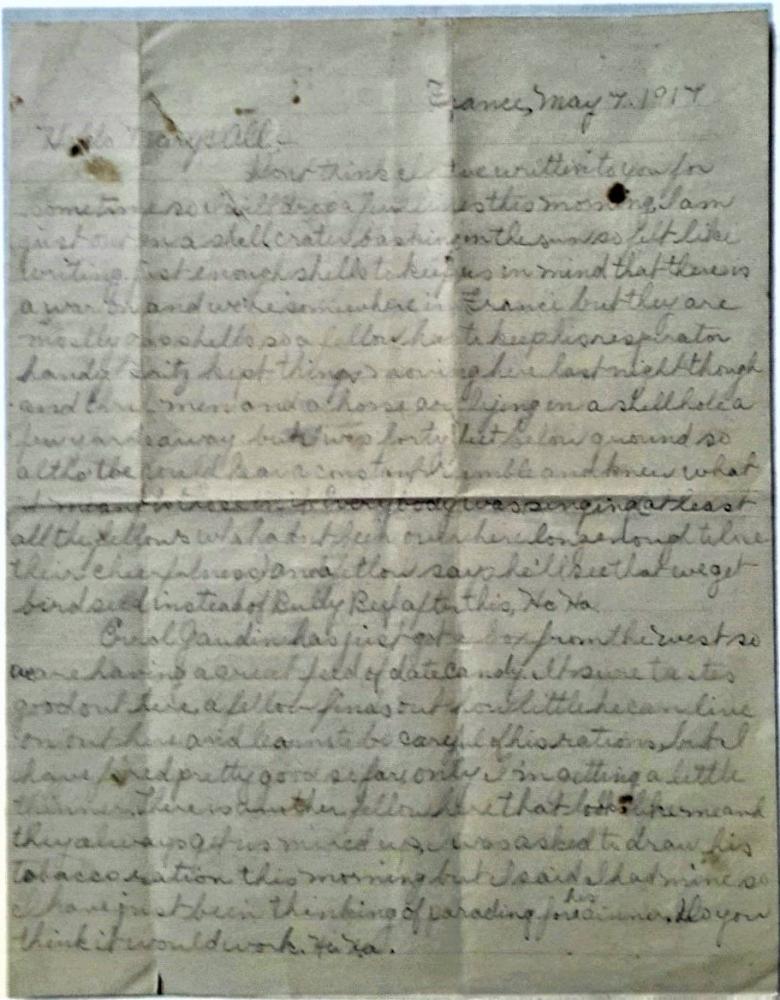 France, May 7. 1917
Hello Mary & All:-
Don't think I've written to you for
sometime so will drop a few lines this morning. I am
just out in a shell crater basking in the sun so felt like
writing. Just enough shells to keep us in mind that there is
a war on and we're somewhere in France but they are
mostly gas shells, so a fellow has to keep his respirator
handy. Fritz kept things moving here last night though
and three men and a horse are lying in a shell hole a
few yards away but I was forty feet below ground so
altho' we could hear a constant rumble and knew what
it meant Everybody was singing at least
all the fellows who hadn't been over here long enough to lose
their cheerfulness and a fellow says he'll see that we get
bird seed instead of Bully Beef after this, Ha Ha.
Errol Jaudin has just got a box from the west so
we are having a great feed of date candy. It sure tastes
good out here, a fellow finds out how little he can live
on out here and learns to be careful of his rations, but I
have fared pretty good so far, only I'm getting a little
thinner. There is another fellow here that looks like me and
they always get us mixed up, I was asked to draw his
tobacco ration this morning but I said I had mine so
I have just been thinking of parading for his dinner. Do you
think it would work. Ha Ha.